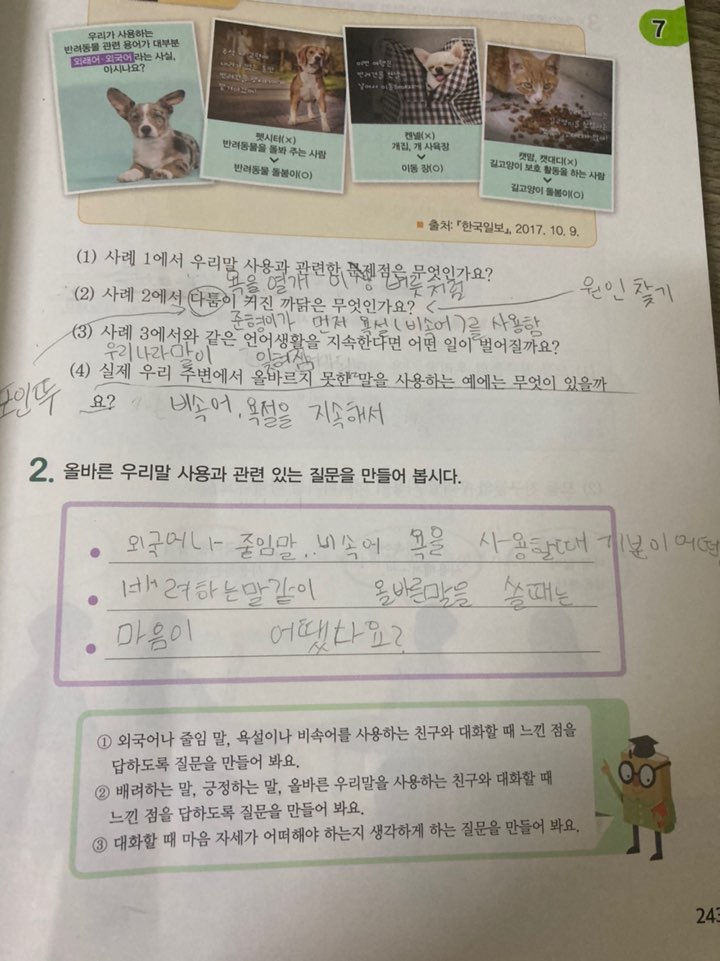 7
우리가 사용하는
반려동물 관련 용어가 대부분
외래어·외국어라는 사실,
아시나요?
펫시터(×)
반려동물을 돌봐 주는 사람
반려동물 돌봄이(○)
켄넬(×)
개집, 개 사육장
이동 장(○)
캣맘, 캣대디(×)
길고양이 보호 활동을 하는 사람
길고양이 돌봄이(○)
■ 출처: 『한국일보』, 2017. 10. 9.
(1) 사례 1에서 우리말 사용과 관련한 문제점은 무엇인가요?
욕을 열개 이상
(2) 사례 2에서 다툼이 커진 까닭은 무엇인가요?
원인 찾기
준형이가 먼저 욕설(비속어)를 사용함
(3) 사례 3에서와 같은 언어생활을 지속한다면 어떤 일이 벌어질까요?
우리나라말이 잊혀짐
(4) 실제 우리 주변에서 올바르지 못한 말을 사용하는 예에는 무엇이 있을까
요?
비속어, 욕절을 지속해서
2. 올바른 우리말 사용과 관련 있는 질문을 만들어 봅시다.
외국어나 줄임말, 비속어 욕을 사용할때 기분이 어떤
배려하는말같이 올바른말을 쓸때는
마음이 어땠나요?
① 외국어나 줄임 말, 욕설이나 비속어를 사용하는 친구와 대화할 때 느낀 점을
답하도록 질문을 만들어 봐요.
② 배려하는 말, 긍정하는 말, 올바른 우리말을 사용하는 친구와 대화할 때
느낀 점을 답하도록 질문을 만들어 봐요.
③ 대화할 때 마음 자세가 어떠해야 하는지 생각하게 하는 질문을 만들어 봐요.
243